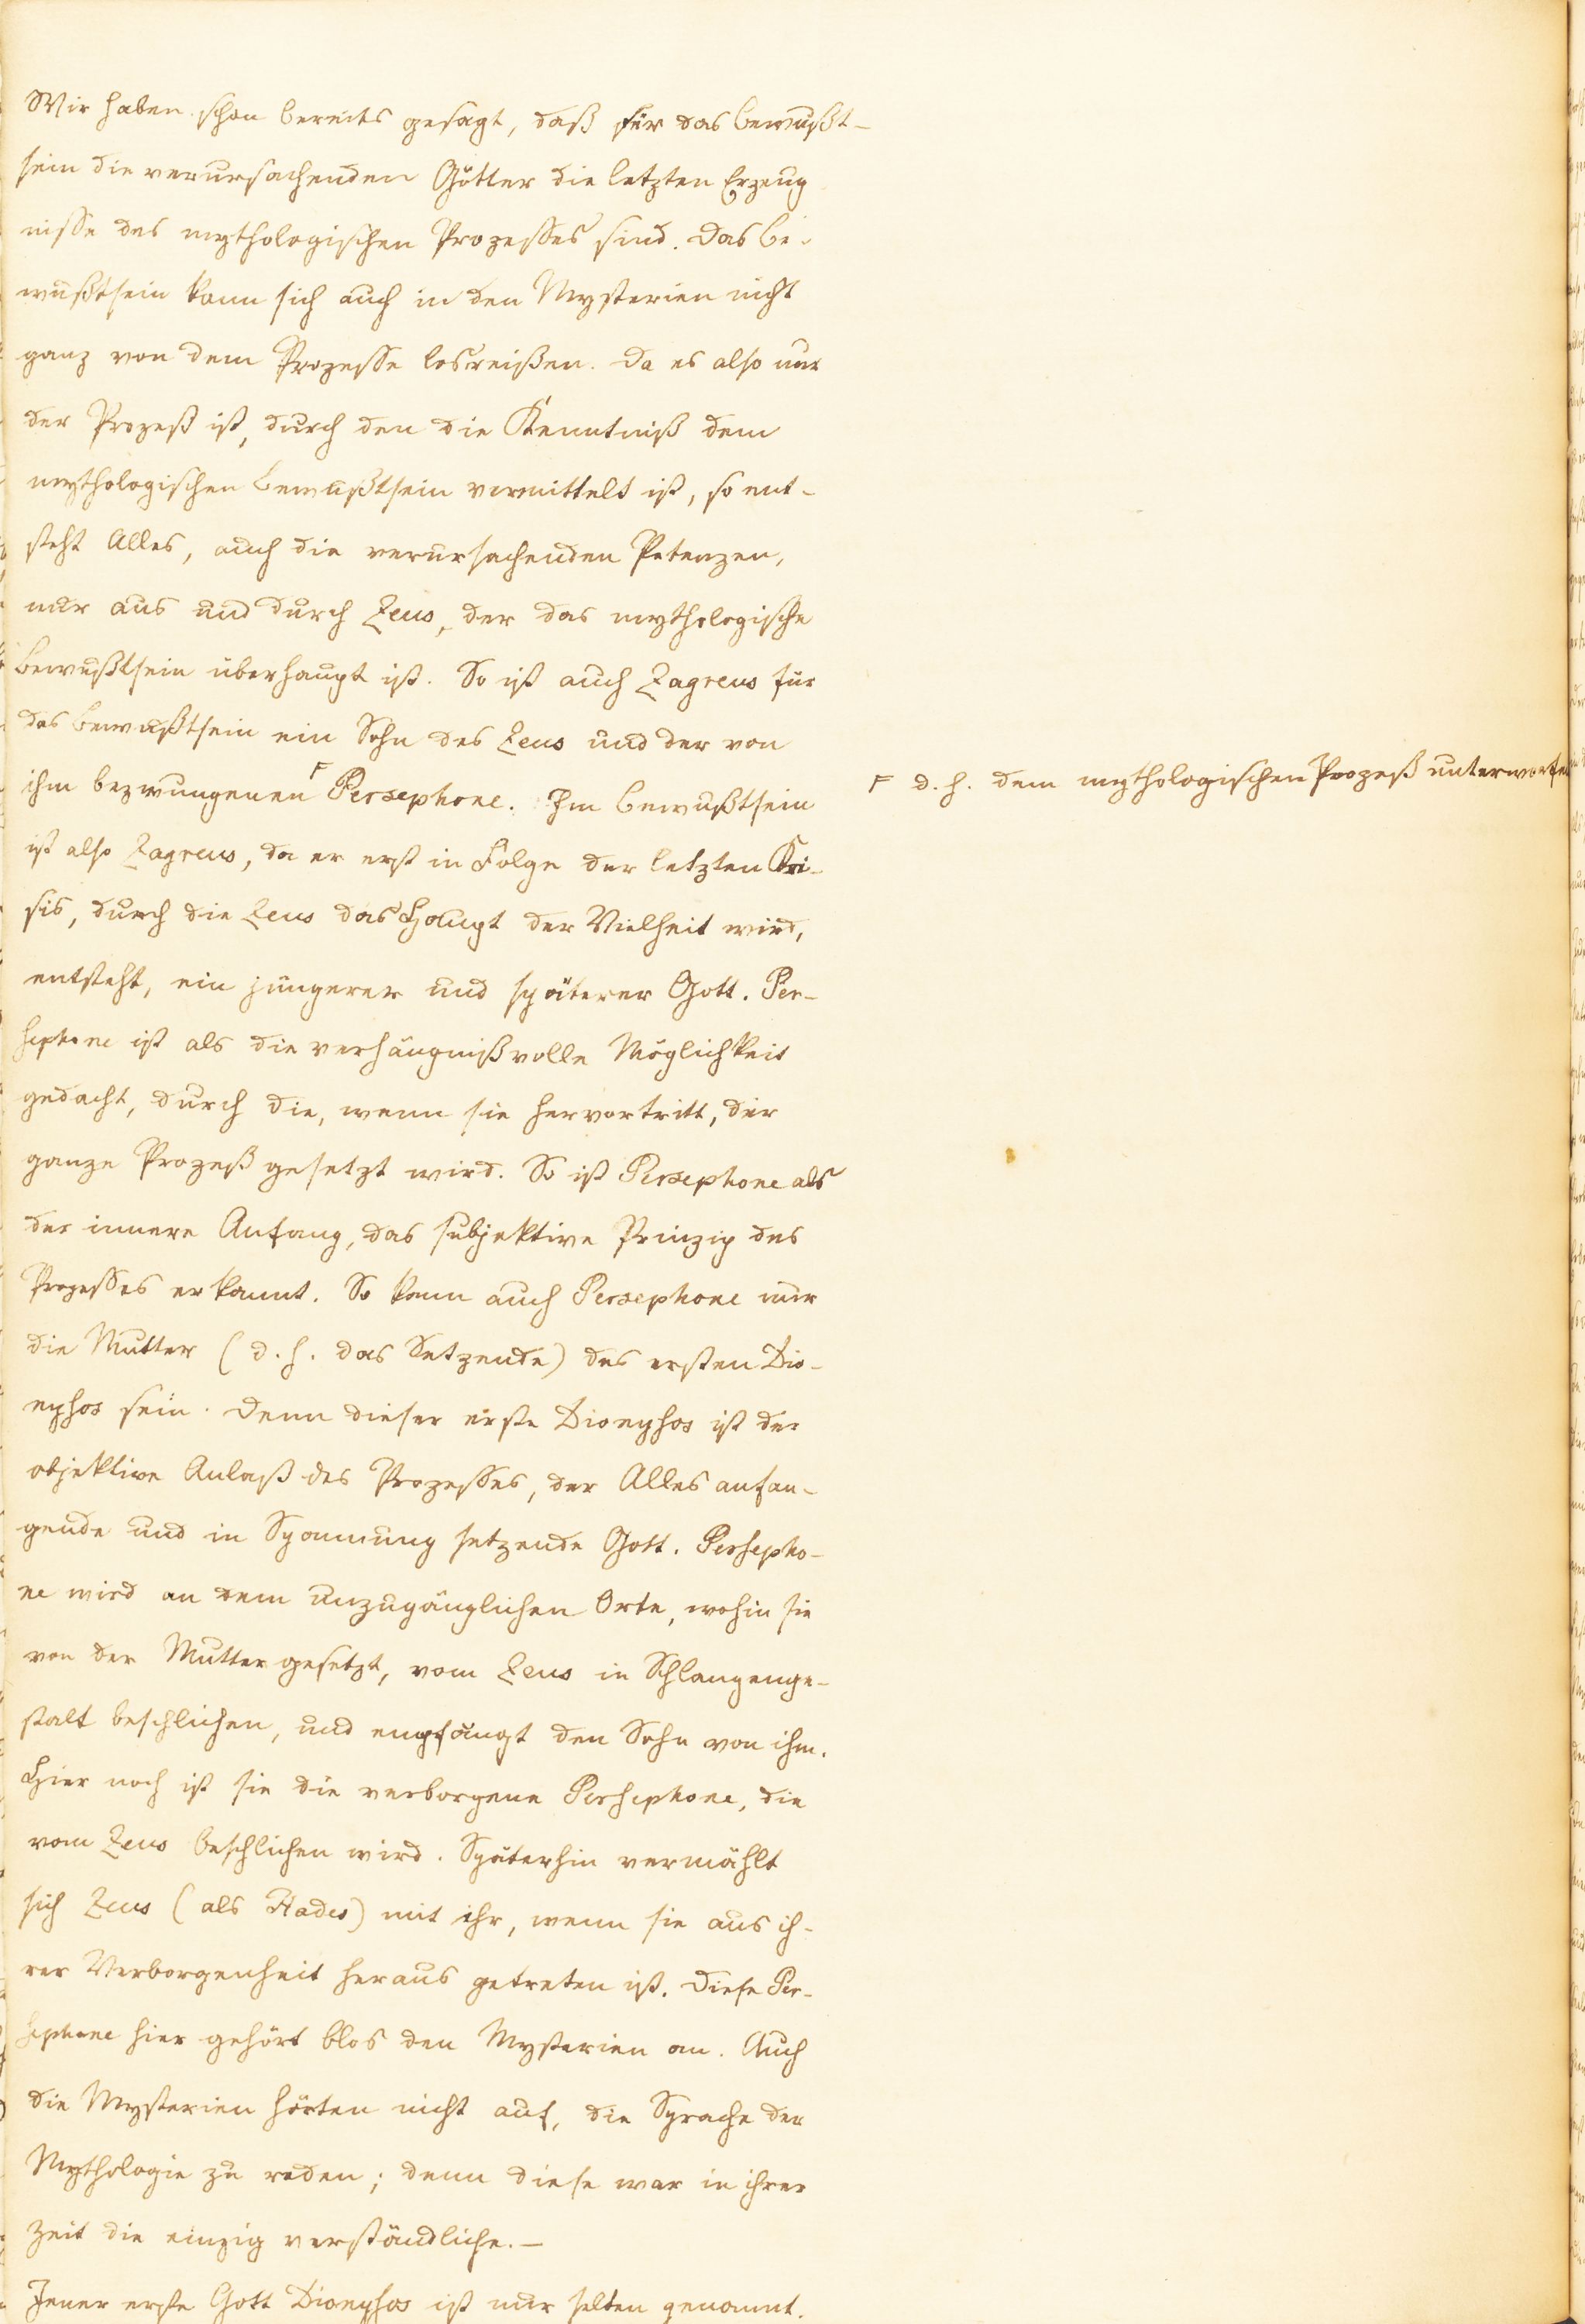 Wir haben schon bereits gesagt, daß für das Bewußt-
sein die verursachenden Götter die letzten Erzeug
nisse des mythologischen Prozesses sind. Das Be-
wußtsein kann sich auch in den Mysterien nicht
ganz von dem Prozesse losreißen. Da es also nur
der Prozeß ist, durch den die Kenntniß dem
mythologischen Bewußtsein vermittelt ist, so ent-
steht Alles, auch die verursachenden Potenzen,
nur aus und durch Zeus, der das mythologische
Bewußtsein überhaupt ist. So ist auch Zagreus für
das Bewußtsein ein Sohn des Zeus und der von
ihm bezwungenen F Persephone. Im Bewußtsein
F d. h. dem mythologischen Prozeß unterworfen
ist also Zagreus, da er erst in Folge der letzten Kri-
sis, durch die Zeus das Haupt der Vielheit wird,
entsteht, ein jüngerer und späterer Gott. Per-
sephone ist als die verhängnißvolle Möglichkeit
gedacht, durch die, wenn sie hervortritt, der
ganze Prozeß gesetzt wird. So ist Persephone als
der innere Anfang, das subjektive Prinzip des
Prozesses erkannt. So kann auch Persephone nur
die Mutter (d. h. das Setzende) des ersten Dio-
nysos sein. Denn dieser erste Dionysos ist der
objektive Anlaß des Prozesses, der Alles anfan-
gende und in Spannung setzende Gott. Persepho-
ne wird an dem unzugänglichen Orte, wohin sie
von der Mutter gesetzt, vom Zeus in Schlangenge-
stalt beschlichen, und empfängt den Sohn von ihm.
Hier noch ist sie die verborgene Persephone, die
vom Zeus beschlichen wird. Späterhin vermählt
sich Zeus (als Hades) mit ihr, wenn sie aus ih-
rer Verborgenheit heraus getreten ist. Diese Per-
sephone hier gehört blos den Mysterien an. Auch
die Mysterien hörten nicht auf, die Sprache der
Mythologie zu reden; denn diese war in ihrer
Zeit die einzig verständliche. —
Jener erste Gott Dionysos ist nur selten genannt.